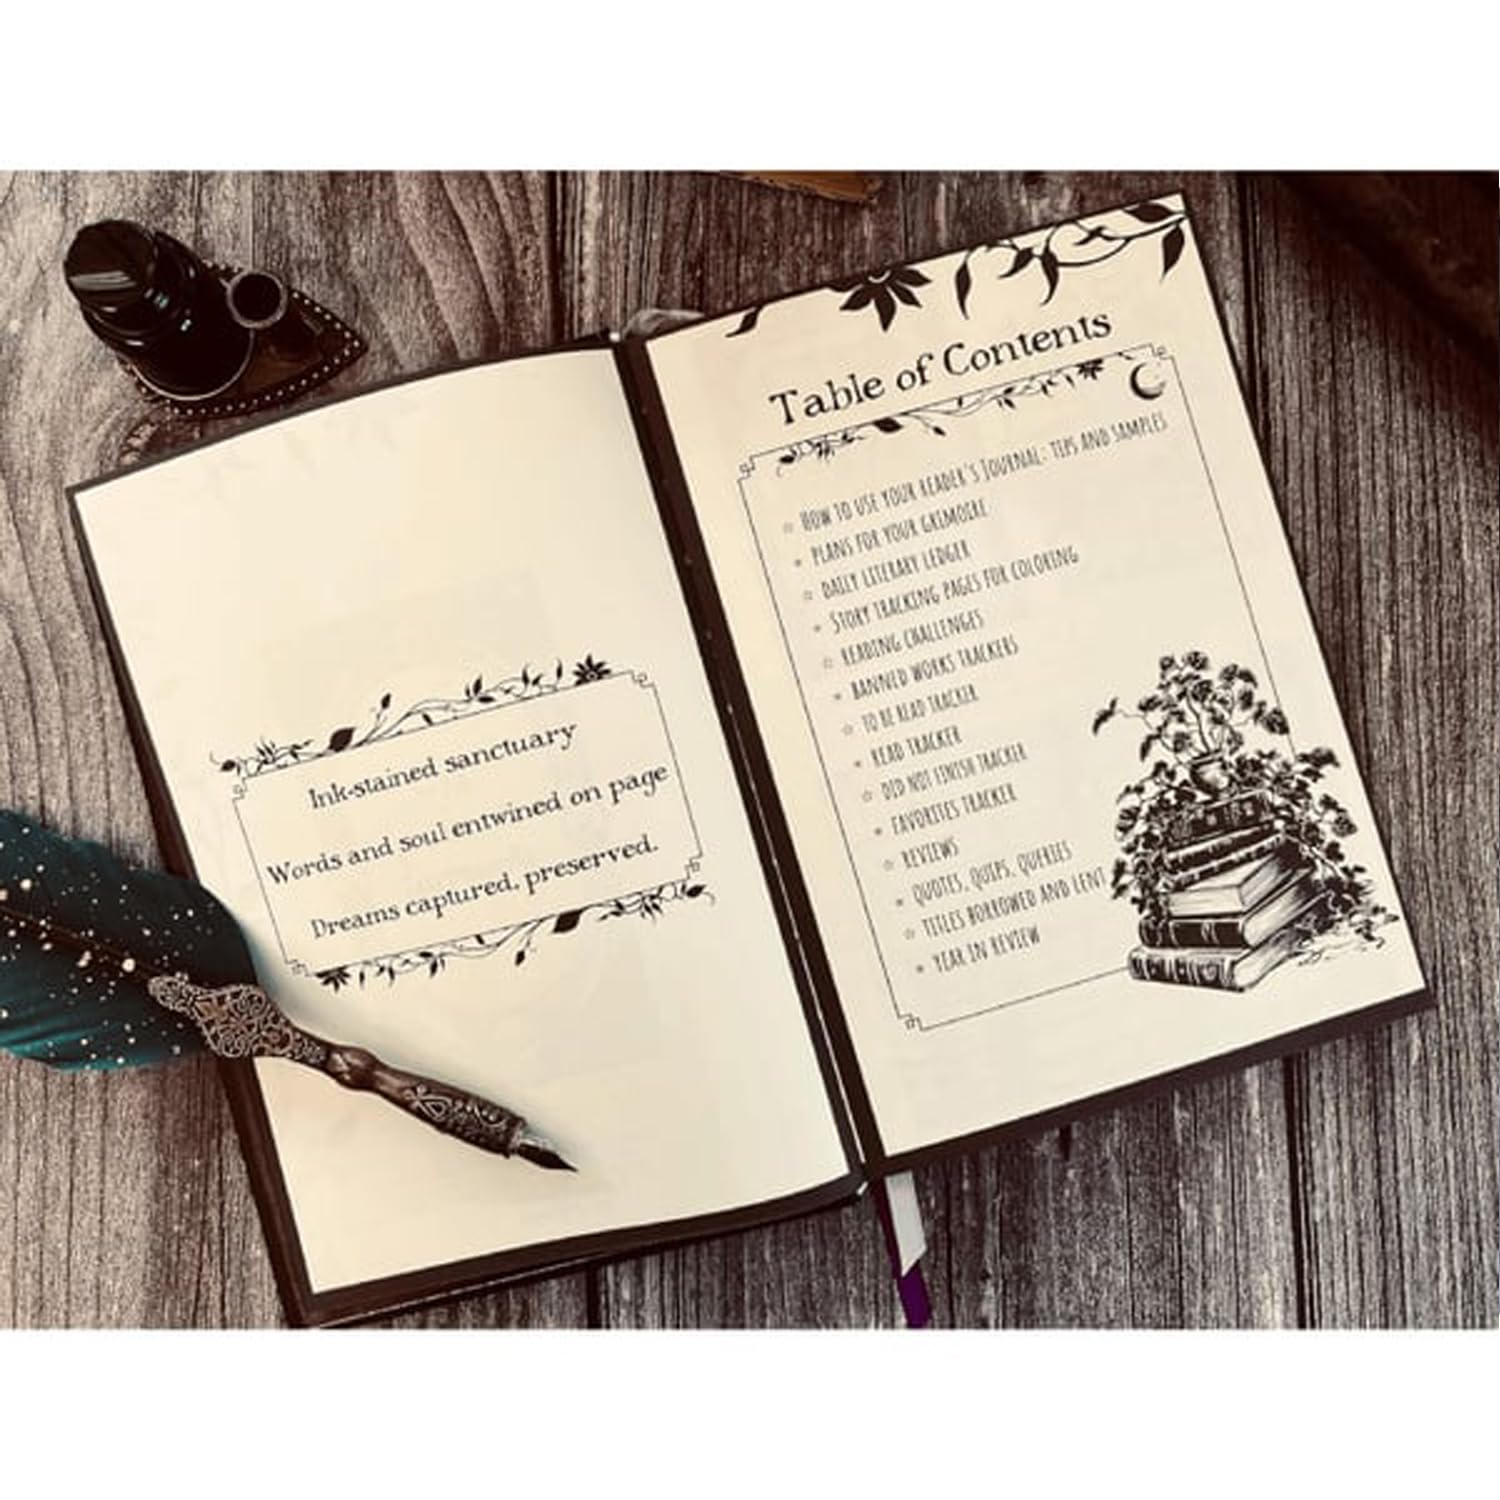 Ink-stained sanctuary
Words and soul entwined on page
Dreams captured, preserved.
Table of Contents
How to use your reader's Journal: tips and samples
plans for your grimoire
daily literary ledger
Story tracking pages for coloring
reading challenges
banned works trackers
to be read tracker
read tracker
did not finish tracker
favorites tracker
reviews
quotes, quips, queries
titles borrowed and lent
year in review